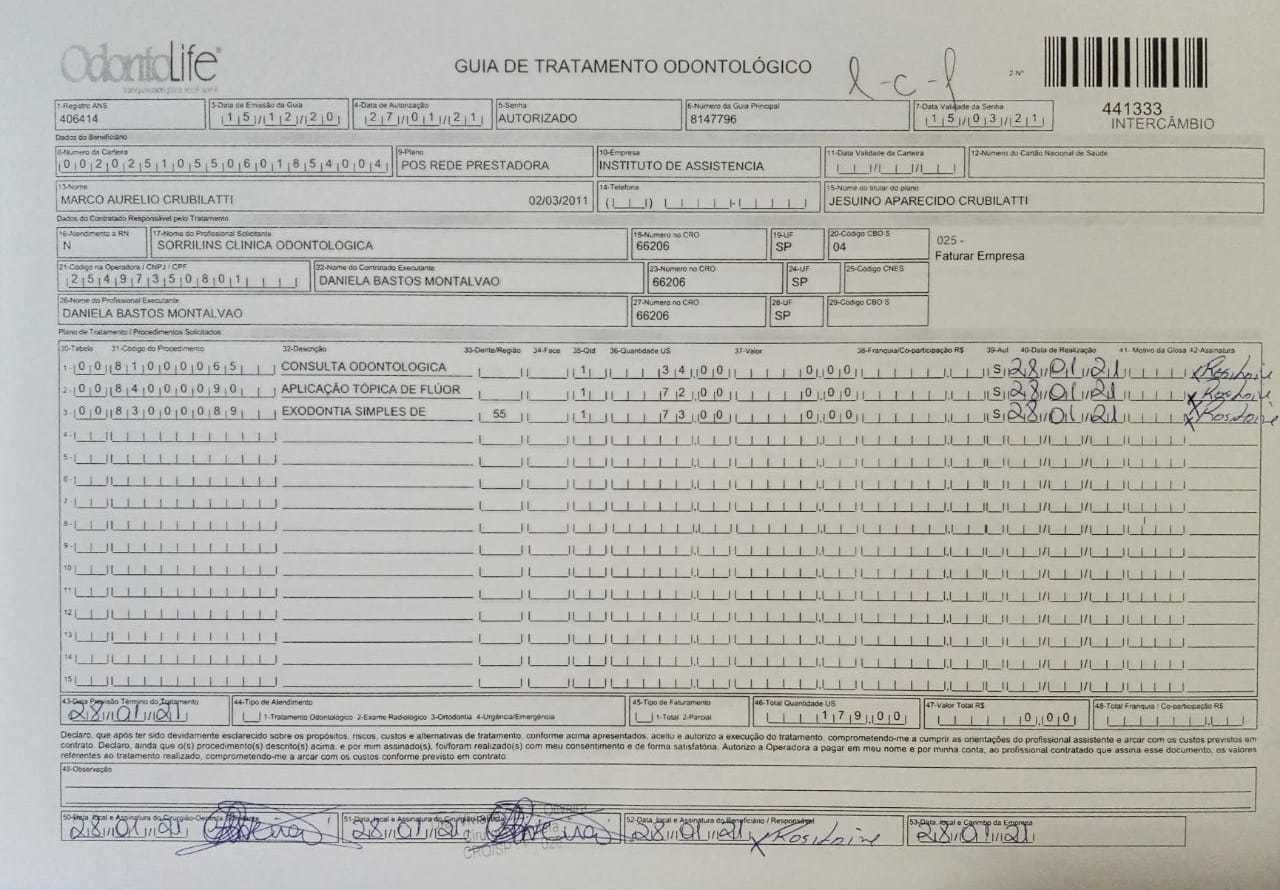 OdontoLife
GUIA DE TRATAMENTO ODONTOLÓGICO
2-Nº
441333
INTERCÂMBIO
1-Registro ANS 3-Data de Emissão da Guia 4-Data de Autorização 5-Senha 6-Número da Guia Principal 7-Data Validade da Senha
406414 15/12/20 27/01/21 AUTORIZADO 8147796 15/03/21
Dados do Beneficiário
8-Número da Carteira 9-Plano 10-Empresa 11-Data Validade da Carteira 12-Número do Cartão Nacional de Saúde
00202510550601854004 POS REDE PRESTADORA INSTITUTO DE ASSISTENCIA
13-Nome 14-Telefone 15-Nome do titular do plano
MARCO AURELIO CRUBILATTI 02/03/2011 JESUINO APARECIDO CRUBILATTI
Dados do Contratado Responsável pelo Tratamento
16-Atendimento a RN 17-Nome do Profissional Solicitante 18-Número no CRO 19-UF 20-Código CBO S
N SORRILINS CLINICA ODONTOLOGICA 66206 SP 04
025 -
Faturar Empresa
21-Código na Operadora / CNPJ / CPF 22-Nome do Contratado Executante 23-Número no CRO 24-UF 25-Código CNES
25497350801 DANIELA BASTOS MONTALVAO 66206 SP
26-Nome do Profissional Executante 27-Número no CRO 28-UF 29-Código CBO S
DANIELA BASTOS MONTALVAO 66206 SP
Plano de Tratamento / Procedimentos Solicitados
30-Tabela 31-Código do Procedimento 32-Descrição 33-Dente/Região 34-Face 35-Qtd 36-Quantidade US 37-Valor 38-Franquia/Co-participação R$ 39-Aut 40-Data de Realização 41- Motivo da Glosa 42-Assinatura
1- 00 81000065 CONSULTA ODONTOLOGICA 1 34,00 0,00 S 28/01/21 x Rosilaine
2- 00 84000090 APLICAÇÃO TÓPICA DE FLÚOR 1 72,00 0,00 S 28/01/21 x Rosilaine
3- 00 83000089 EXODONTIA SIMPLES DE 55 1 73,00 0,00 S 28/01/21 x Rosilaine
4-
5-
6-
7-
8-
9-
10
11
12
13
14
15
43-Data Previsão Término do Tratamento 44-Tipo de Atendimento 45-Tipo de Faturamento 46-Total Quantidade US 47-Valor Total R$ 48-Total Franquia / Co-participação R$
28/01/21 1-Tratamento Odontológico 2-Exame Radiológico 3-Ortodontia 4-Urgência/Emergência 1-Total 2-Parcial 179,00 0,00
Declaro, que após ter sido devidamente esclarecido sobre os propósitos, riscos, custos e alternativas de tratamento, conforme acima apresentados, aceito e autorizo a execução do tratamento, comprometendo-me a cumprir as orientações do profissional assistente e arcar com os custos previstos em
contrato. Declaro, ainda que o(s) procedimento(s) descrito(s) acima, e por mim assinado(s), foi/foram realizado(s) com meu consentimento e de forma satisfatória. Autorizo a Operadora a pagar em meu nome e por minha conta, ao profissional contratado que assina esse documento, os valores
referentes ao tratamento realizado, comprometendo-me a arcar com os custos conforme previsto em contrato.
49-Observação
50-Data, local e Assinatura do Cirurgião-Dentista 51-Data, local e Assinatura do Cirurgião-Dentista 52-Data, local e Assinatura do Beneficiário / Responsável 53-Data, local e Carimbo da Empresa
28/01/21 28/01/21 28/01/21 x Rosilaine 28/01/21